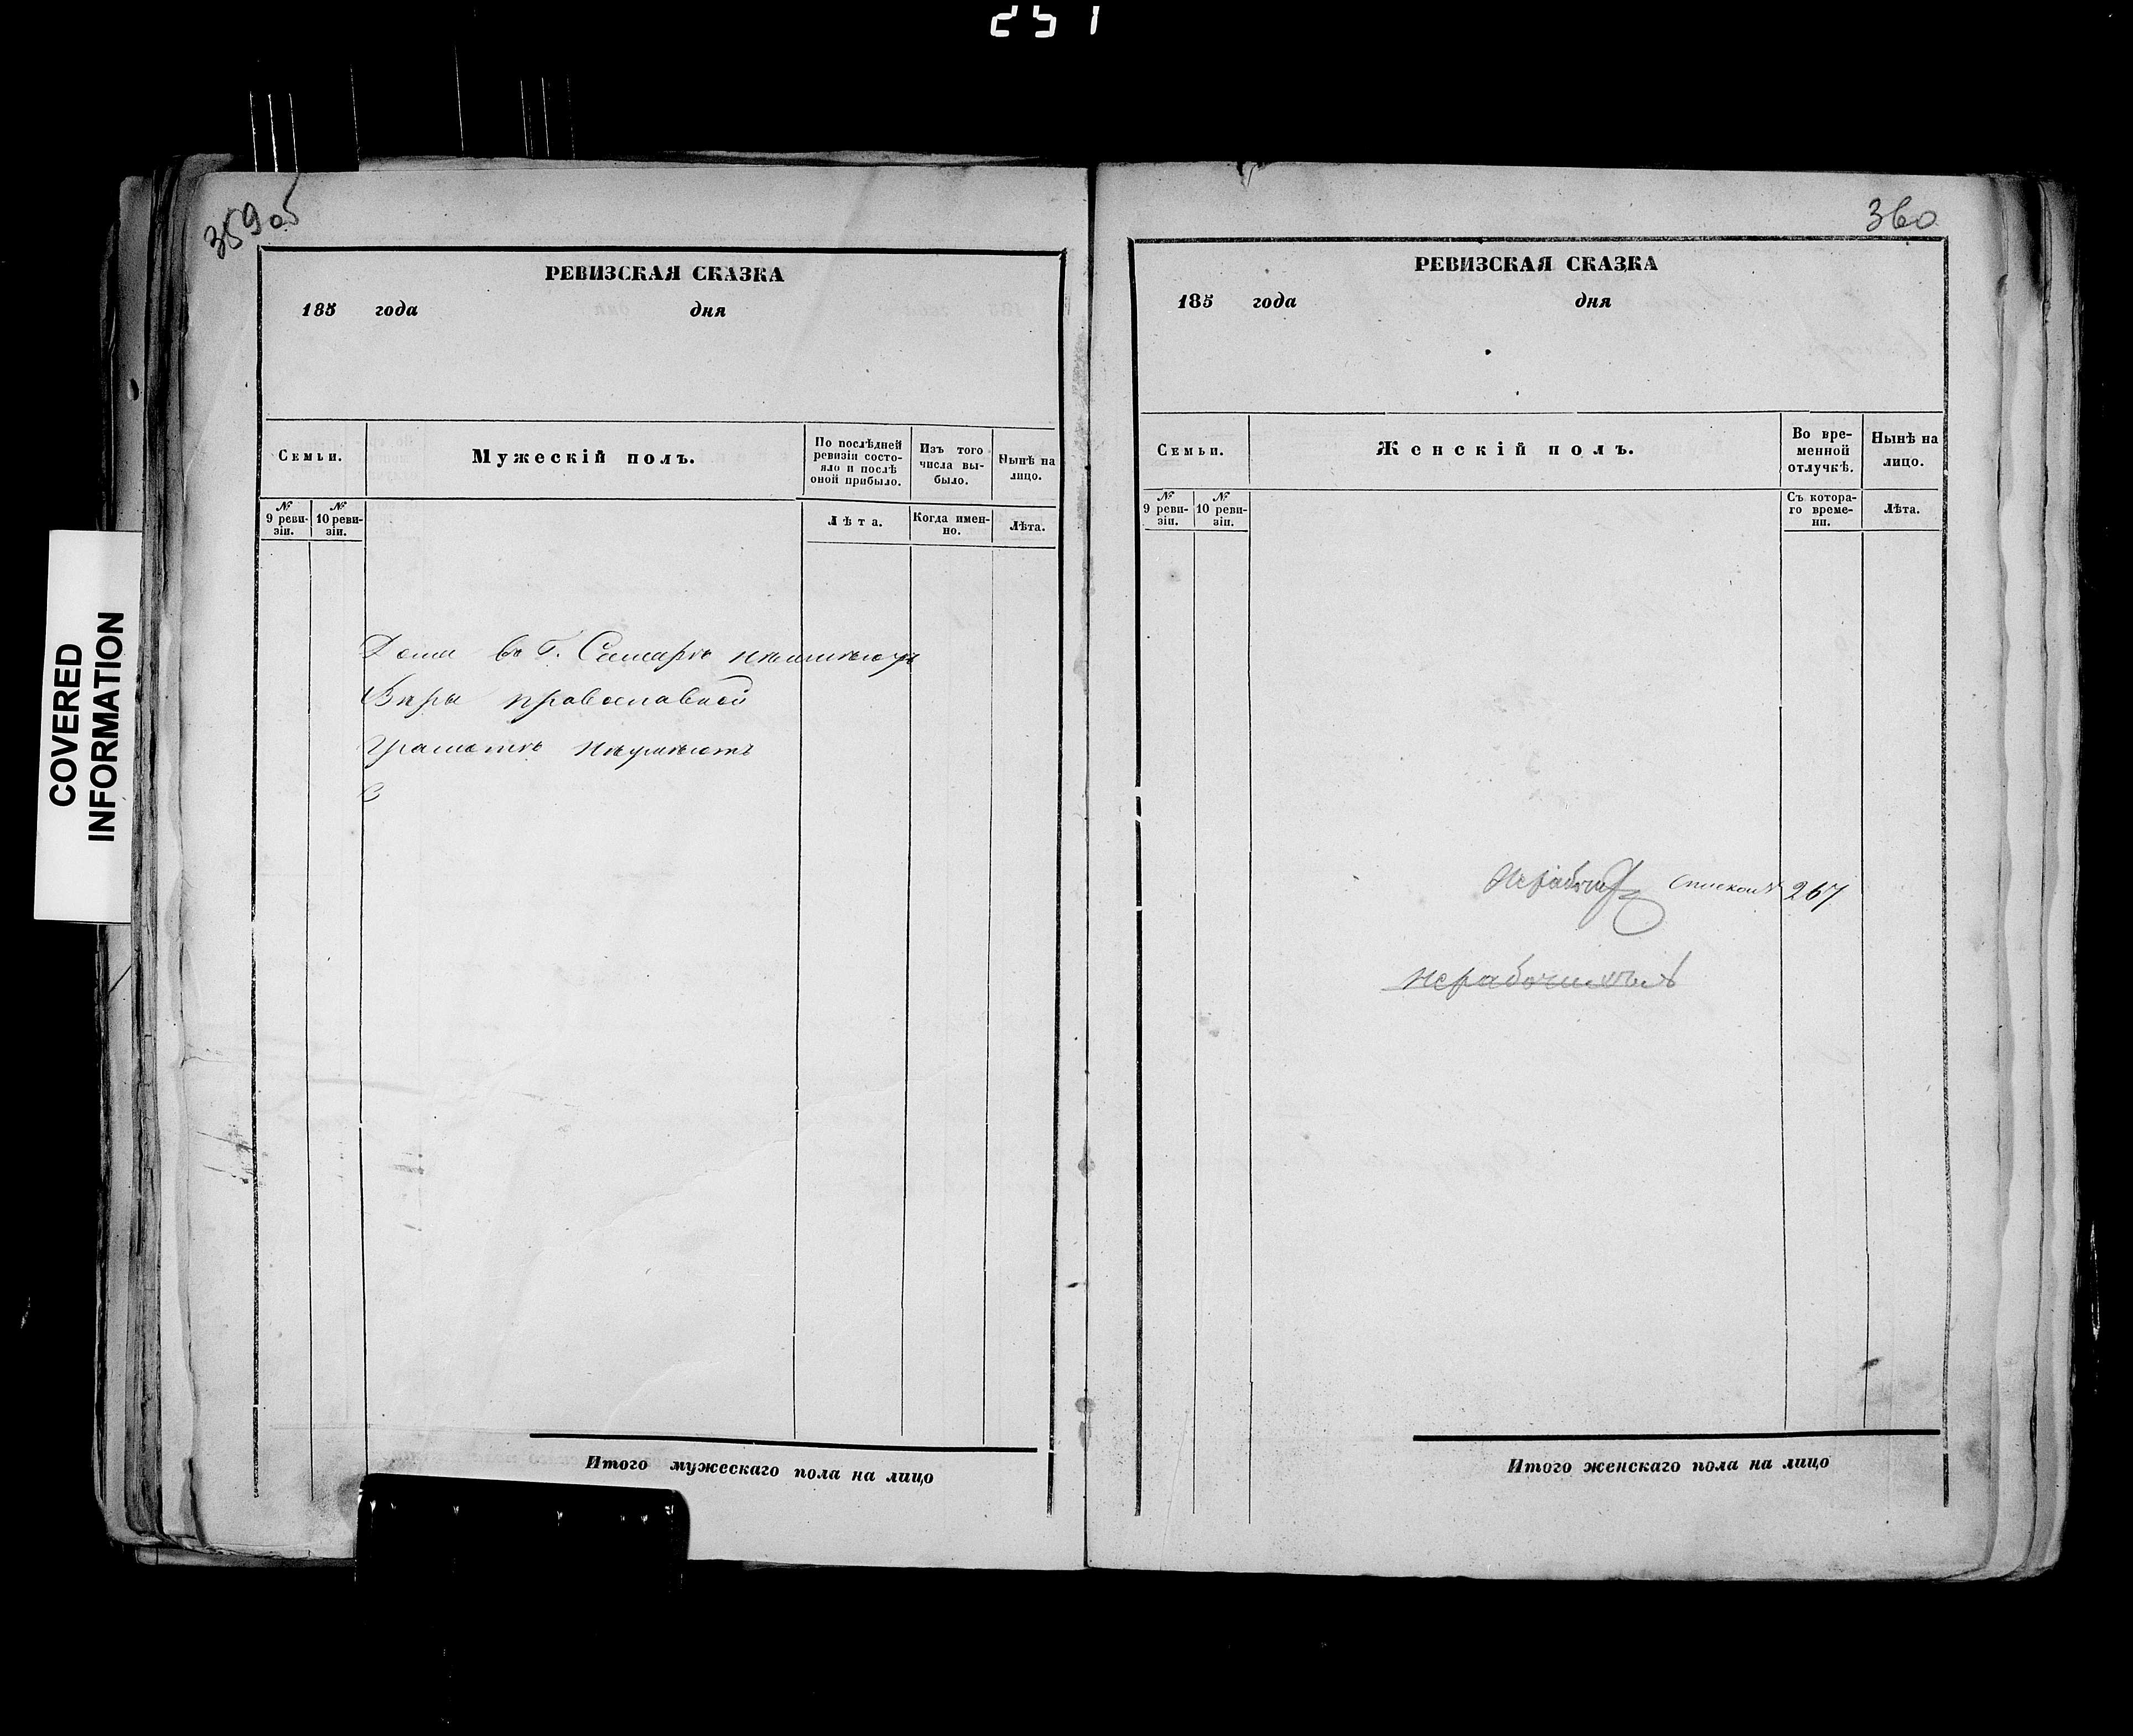 251
359об
РЕВИЗСКАЯ СКАЗКА
185 года дня
Семьи.
Мужескій полъ.
По послѣдней ревизіи состо-
яло и послѣ
оной прибыло.
Изъ того
числа вы-
было.
Нынѣ на
лицо.
№
9 реви-
зіи.
№
10 реви-
зіи.
Лѣта.
Когда имен-
но.
Лѣта.
Дома въ Г. Самарѣ неимѣютъ
Вѣры православной
Грамотѣ неумѣютъ
Итого мужескаго пола на лицо
COVERED
INFORMATION
360
РЕВИЗСКАЯ СКАЗКА
185 года дня
Семьи.
Женскій полъ.
Во вре-
менной
отлучкѣ.
Нынѣ на
лицо.
№
9 реви-
зіи.
№
10 реви-
зіи.
Съ котора-
го време-
ни.
Лѣта.
267
Итого женскаго пола на лицо